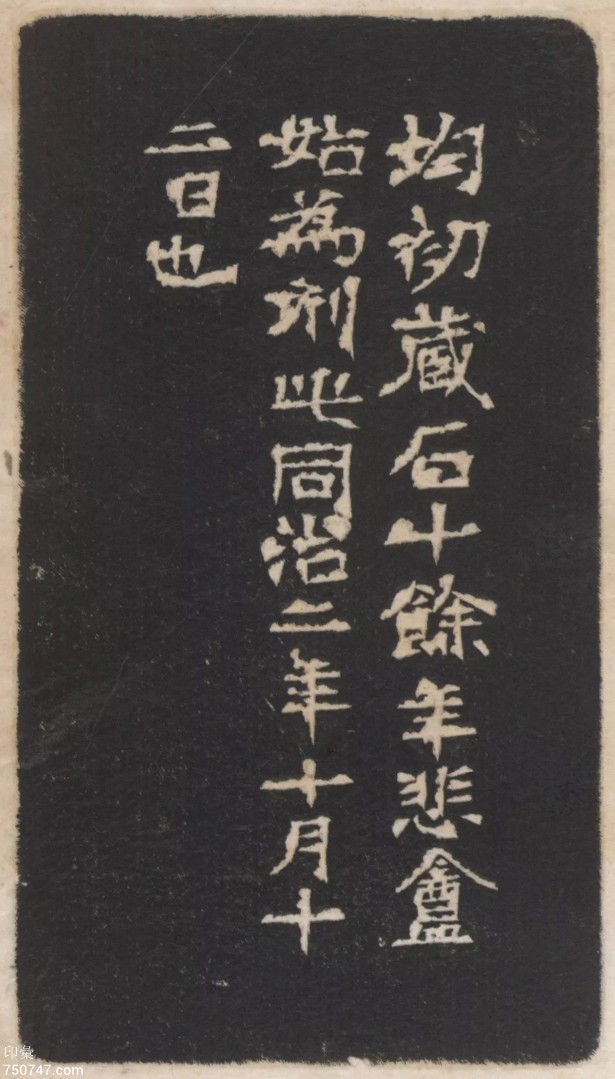 均初藏石十餘年悲盦
始為刑此同治二年十月十
二日也
印彙
750747.com